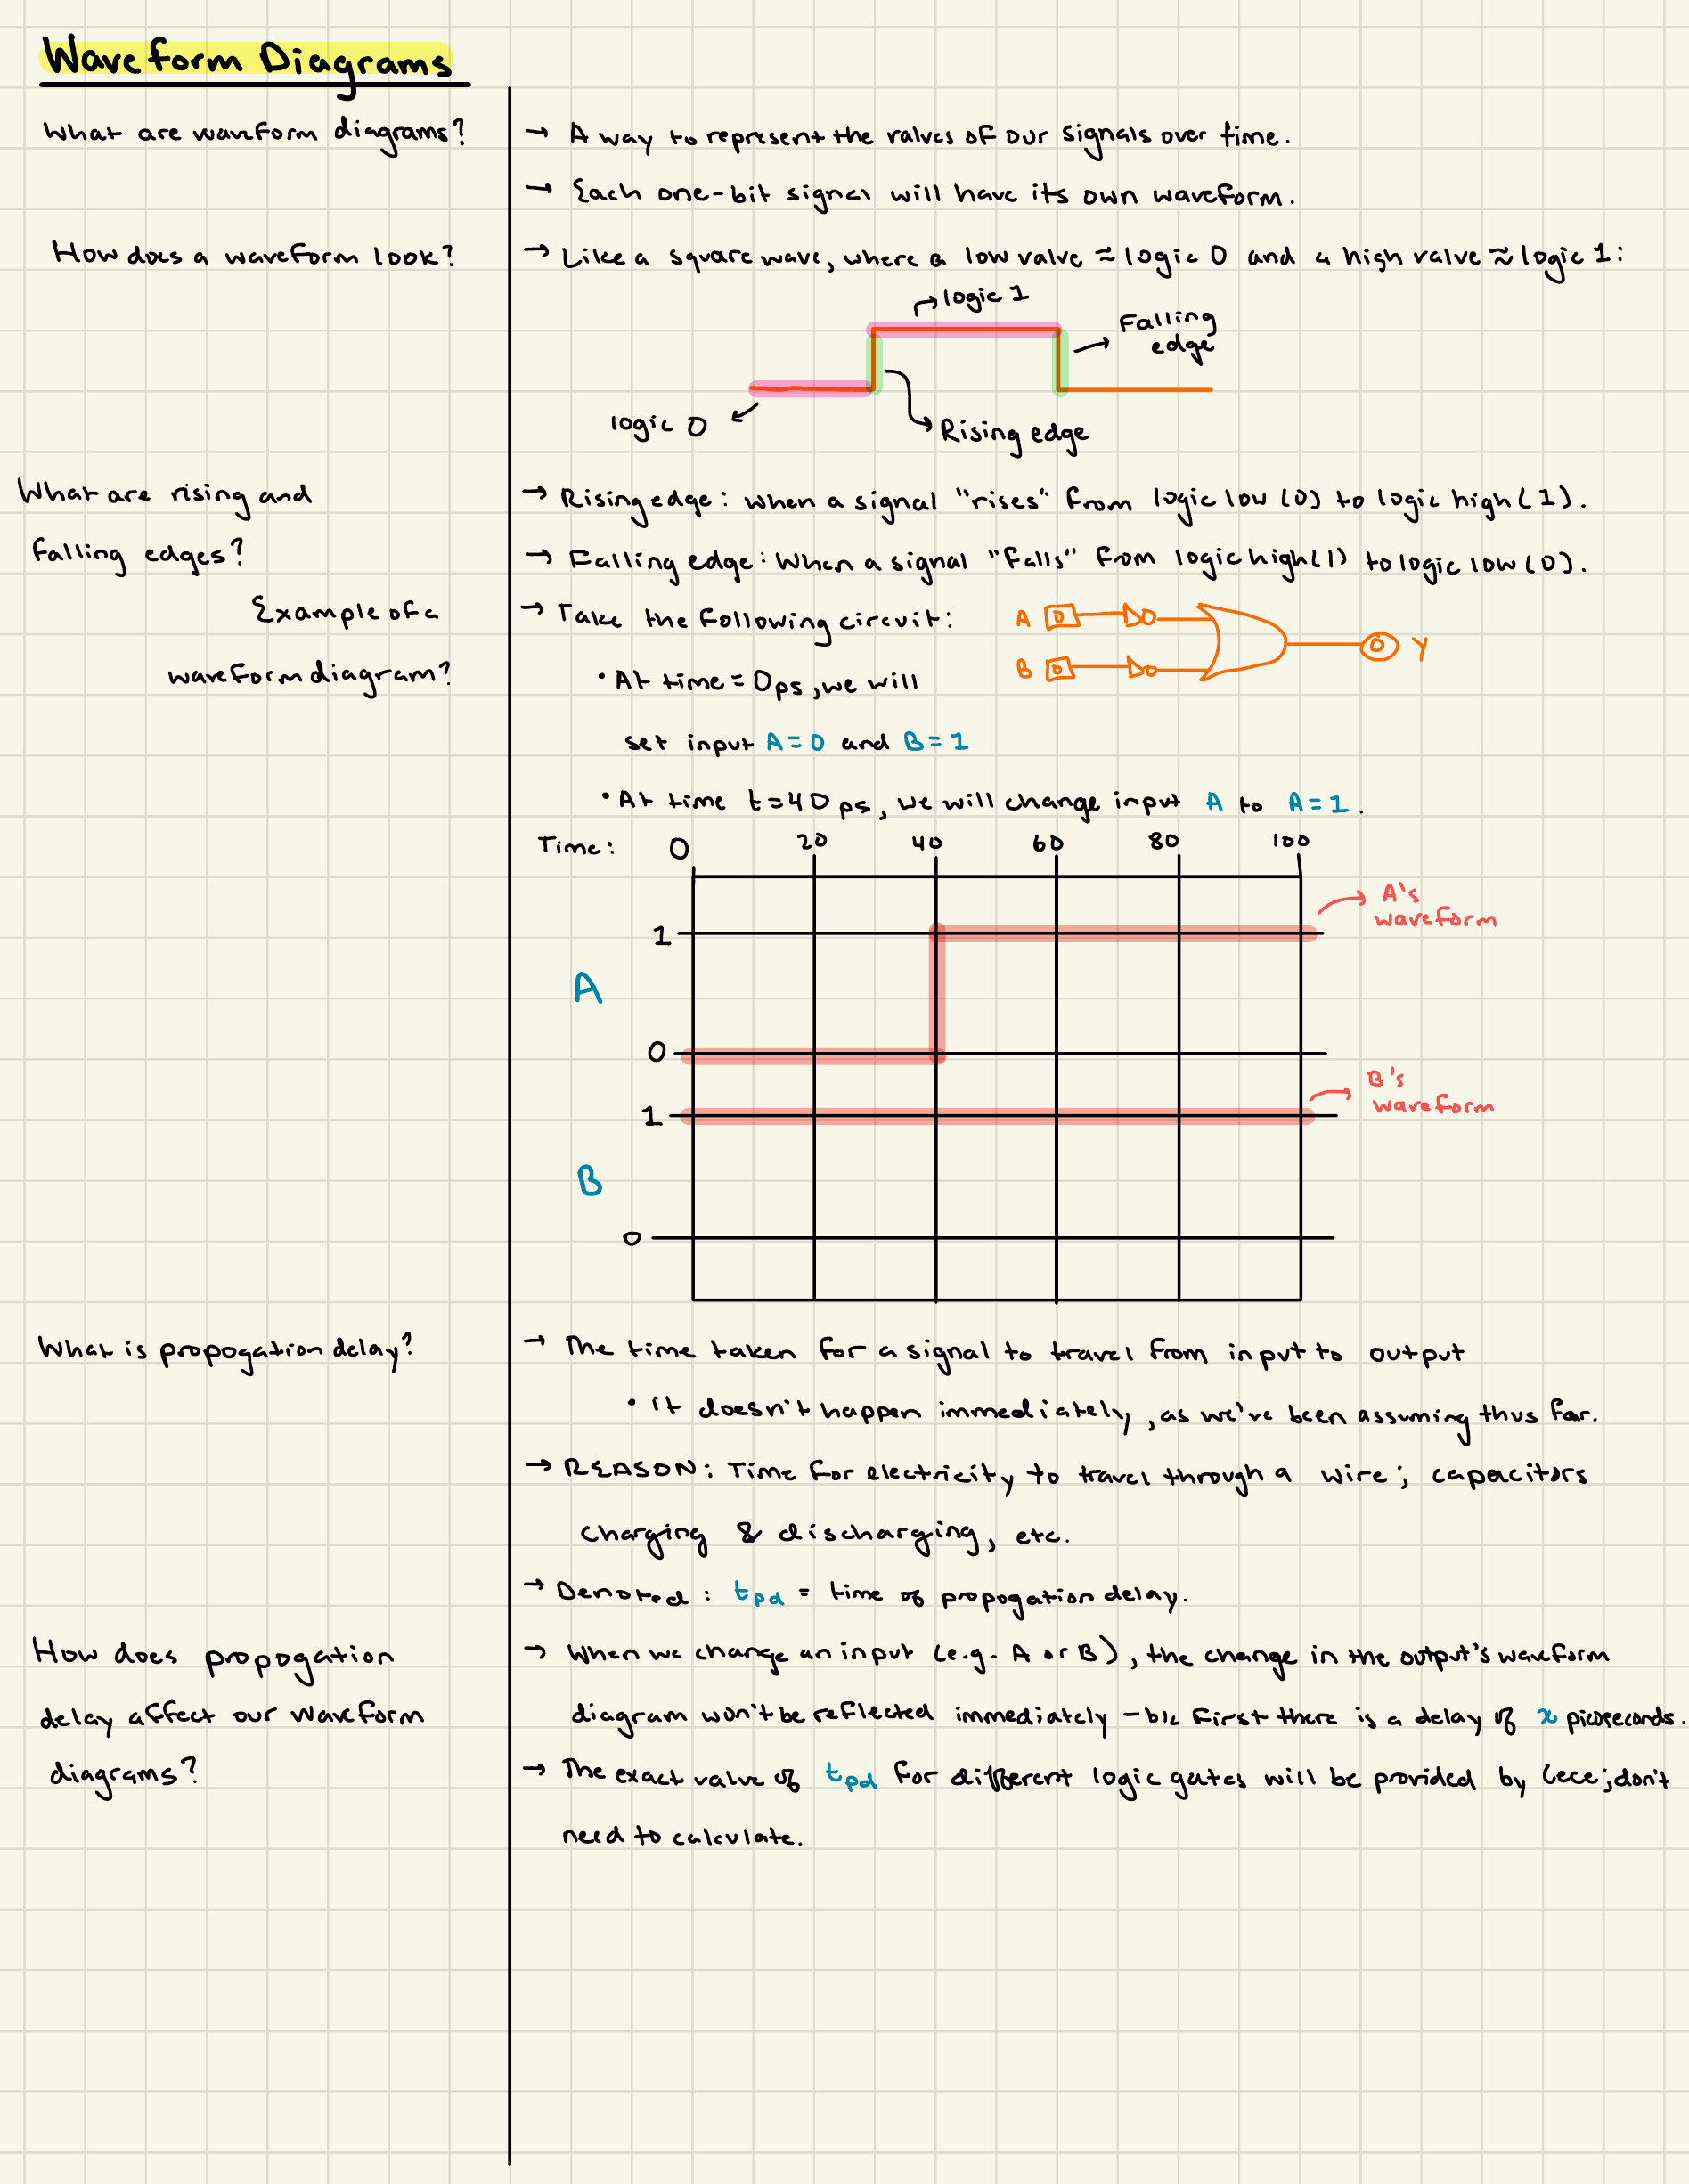 Waveform Diagrams
What are waveform diagrams?
→ A way to represent the values of our signals over time.
→ Each one-bit signal will have its own waveform.
How does a waveform look?
→ Like a square wave, where a low value ≈ logic 0 and a high value ≈ logic 1:
logic 1
Falling
edge
logic 0
Rising edge
What are rising and
falling edges?
→ Rising edge: when a signal "rises" from logic low (0) to logic high (1).
→ Falling edge: When a signal "falls" from logic high (1) to logic low (0).
Example of a
waveform diagram?
→ Take the following circuit:
A 0
B 0
0 Y
• At time = 0ps, we will
set input A = 0 and B = 1
• At time t=40 ps, we will change input A to A = 1.
Time: 0 20 40 60 80 100
A's
waveform
1
A
0
B's
waveform
1
B
0
What is propogation delay?
→ The time taken for a signal to travel from input to output
• it doesn't happen immediately, as we've been assuming thus far.
→ REASON: Time for electricity to travel through a wire; capacitors
charging & discharging, etc.
→ Denoted: tpd = time of propogation delay.
How does propogation
delay affect our waveform
diagrams?
→ When we change an input (e.g. A or B), the change in the output's waveform
diagram won't be reflected immediately - b/c first there is a delay of x picoseconds.
→ The exact value of tpd for different logic gates will be provided by Cece; don't
need to calculate.